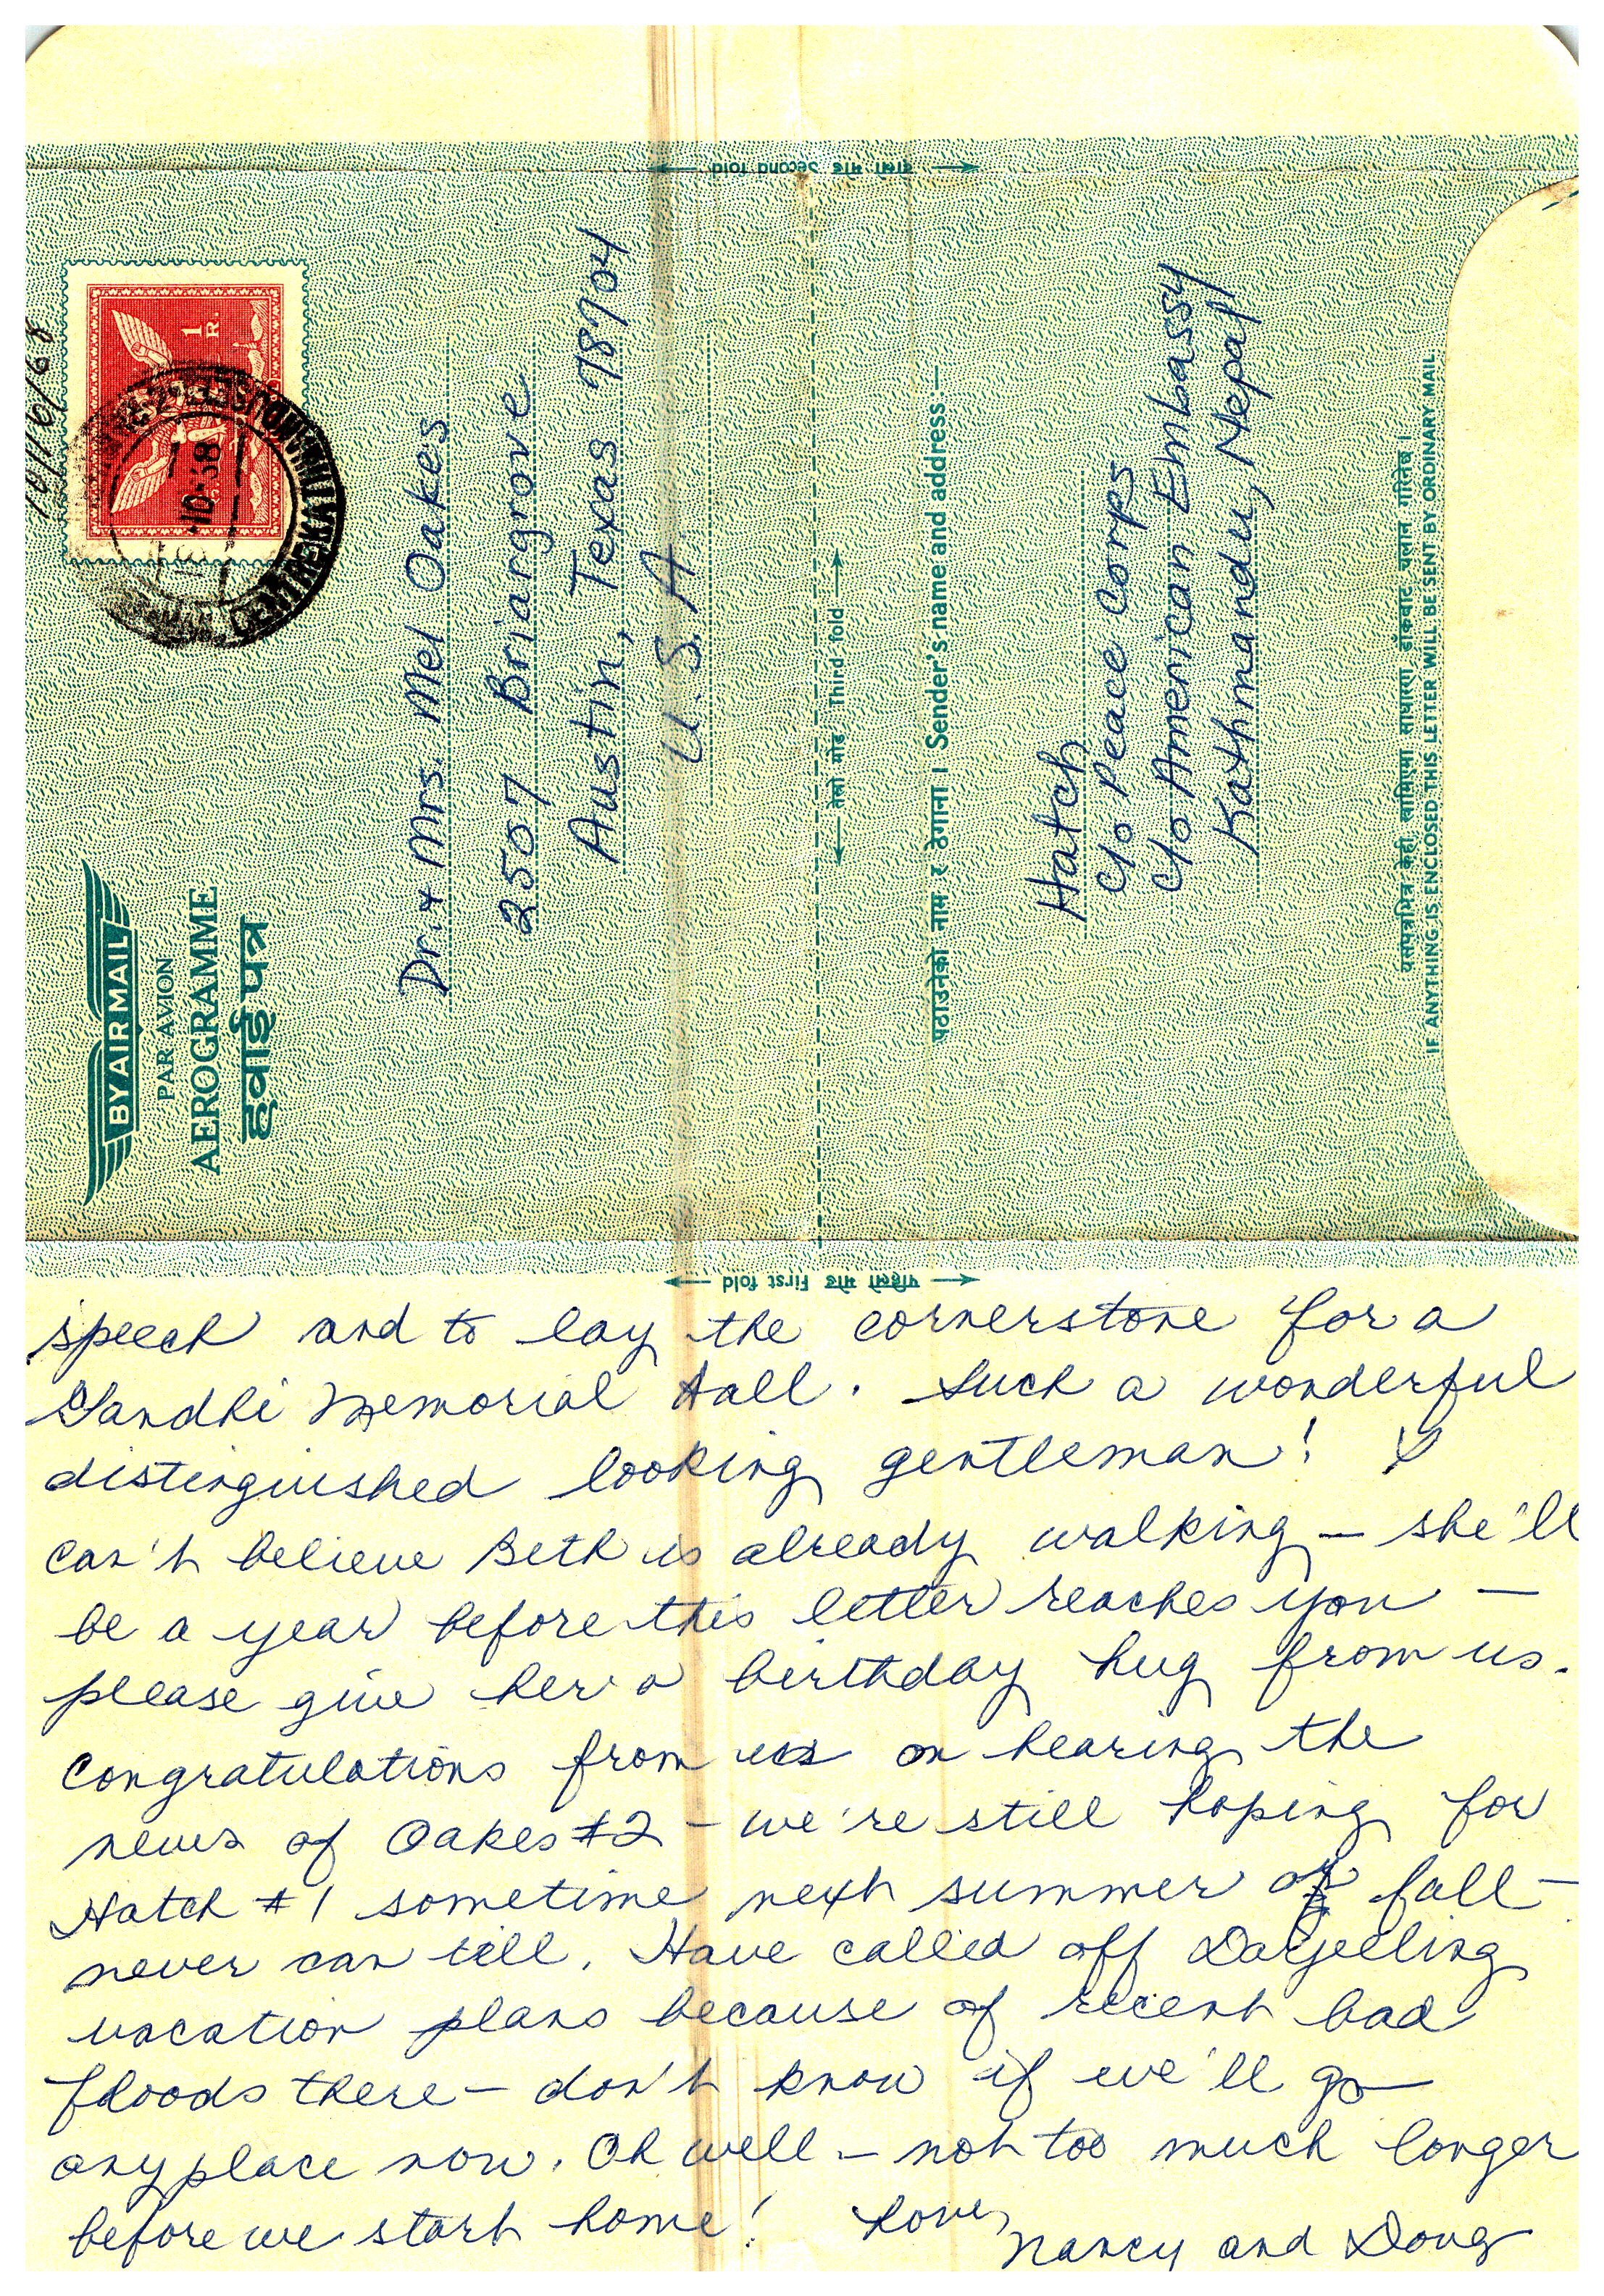 दोस्रो मोड Second fold
10/16/68
1
R.
BY AIR MAIL
PAR AVION
AEROGRAMME
हवाई पत्र
Dr. & Mrs. Mel Oakes
2507 Briargrove
Austin, Texas 78704
U.S.A.
तेस्रो मोड Third fold
पठाउनेको नाम र ठेगाना । Sender's name and address:—
Hatch
c/o Peace Corps
c/o American Embassy
Kathmandu, Nepal
यसपत्रभित्र केही खामिएमा साधारण डाँकबाट चलान गरिनेछ ।
IF ANYTHING IS ENCLOSED THIS LETTER WILL BE SENT BY ORDINARY MAIL
पहिलो मोड First fold
speech and to lay the cornerstone for a
Gandhi Memorial Hall. Such a wonderful
distinguished looking gentleman! I
can't believe Beth is already walking – she'll
be a year before this letter reaches you –
please give her a birthday hug from us.
Congratulations from us on hearing the
news of Oakes #2 – we're still hoping for
Hatch #1 sometime next summer or fall –
never can tell. Have called off Darjeeling
vacation plans because of recent bad
floods there – don't know if we'll go
anyplace now. Oh well – not too much longer
before we start home! Love,
Nancy and Doug